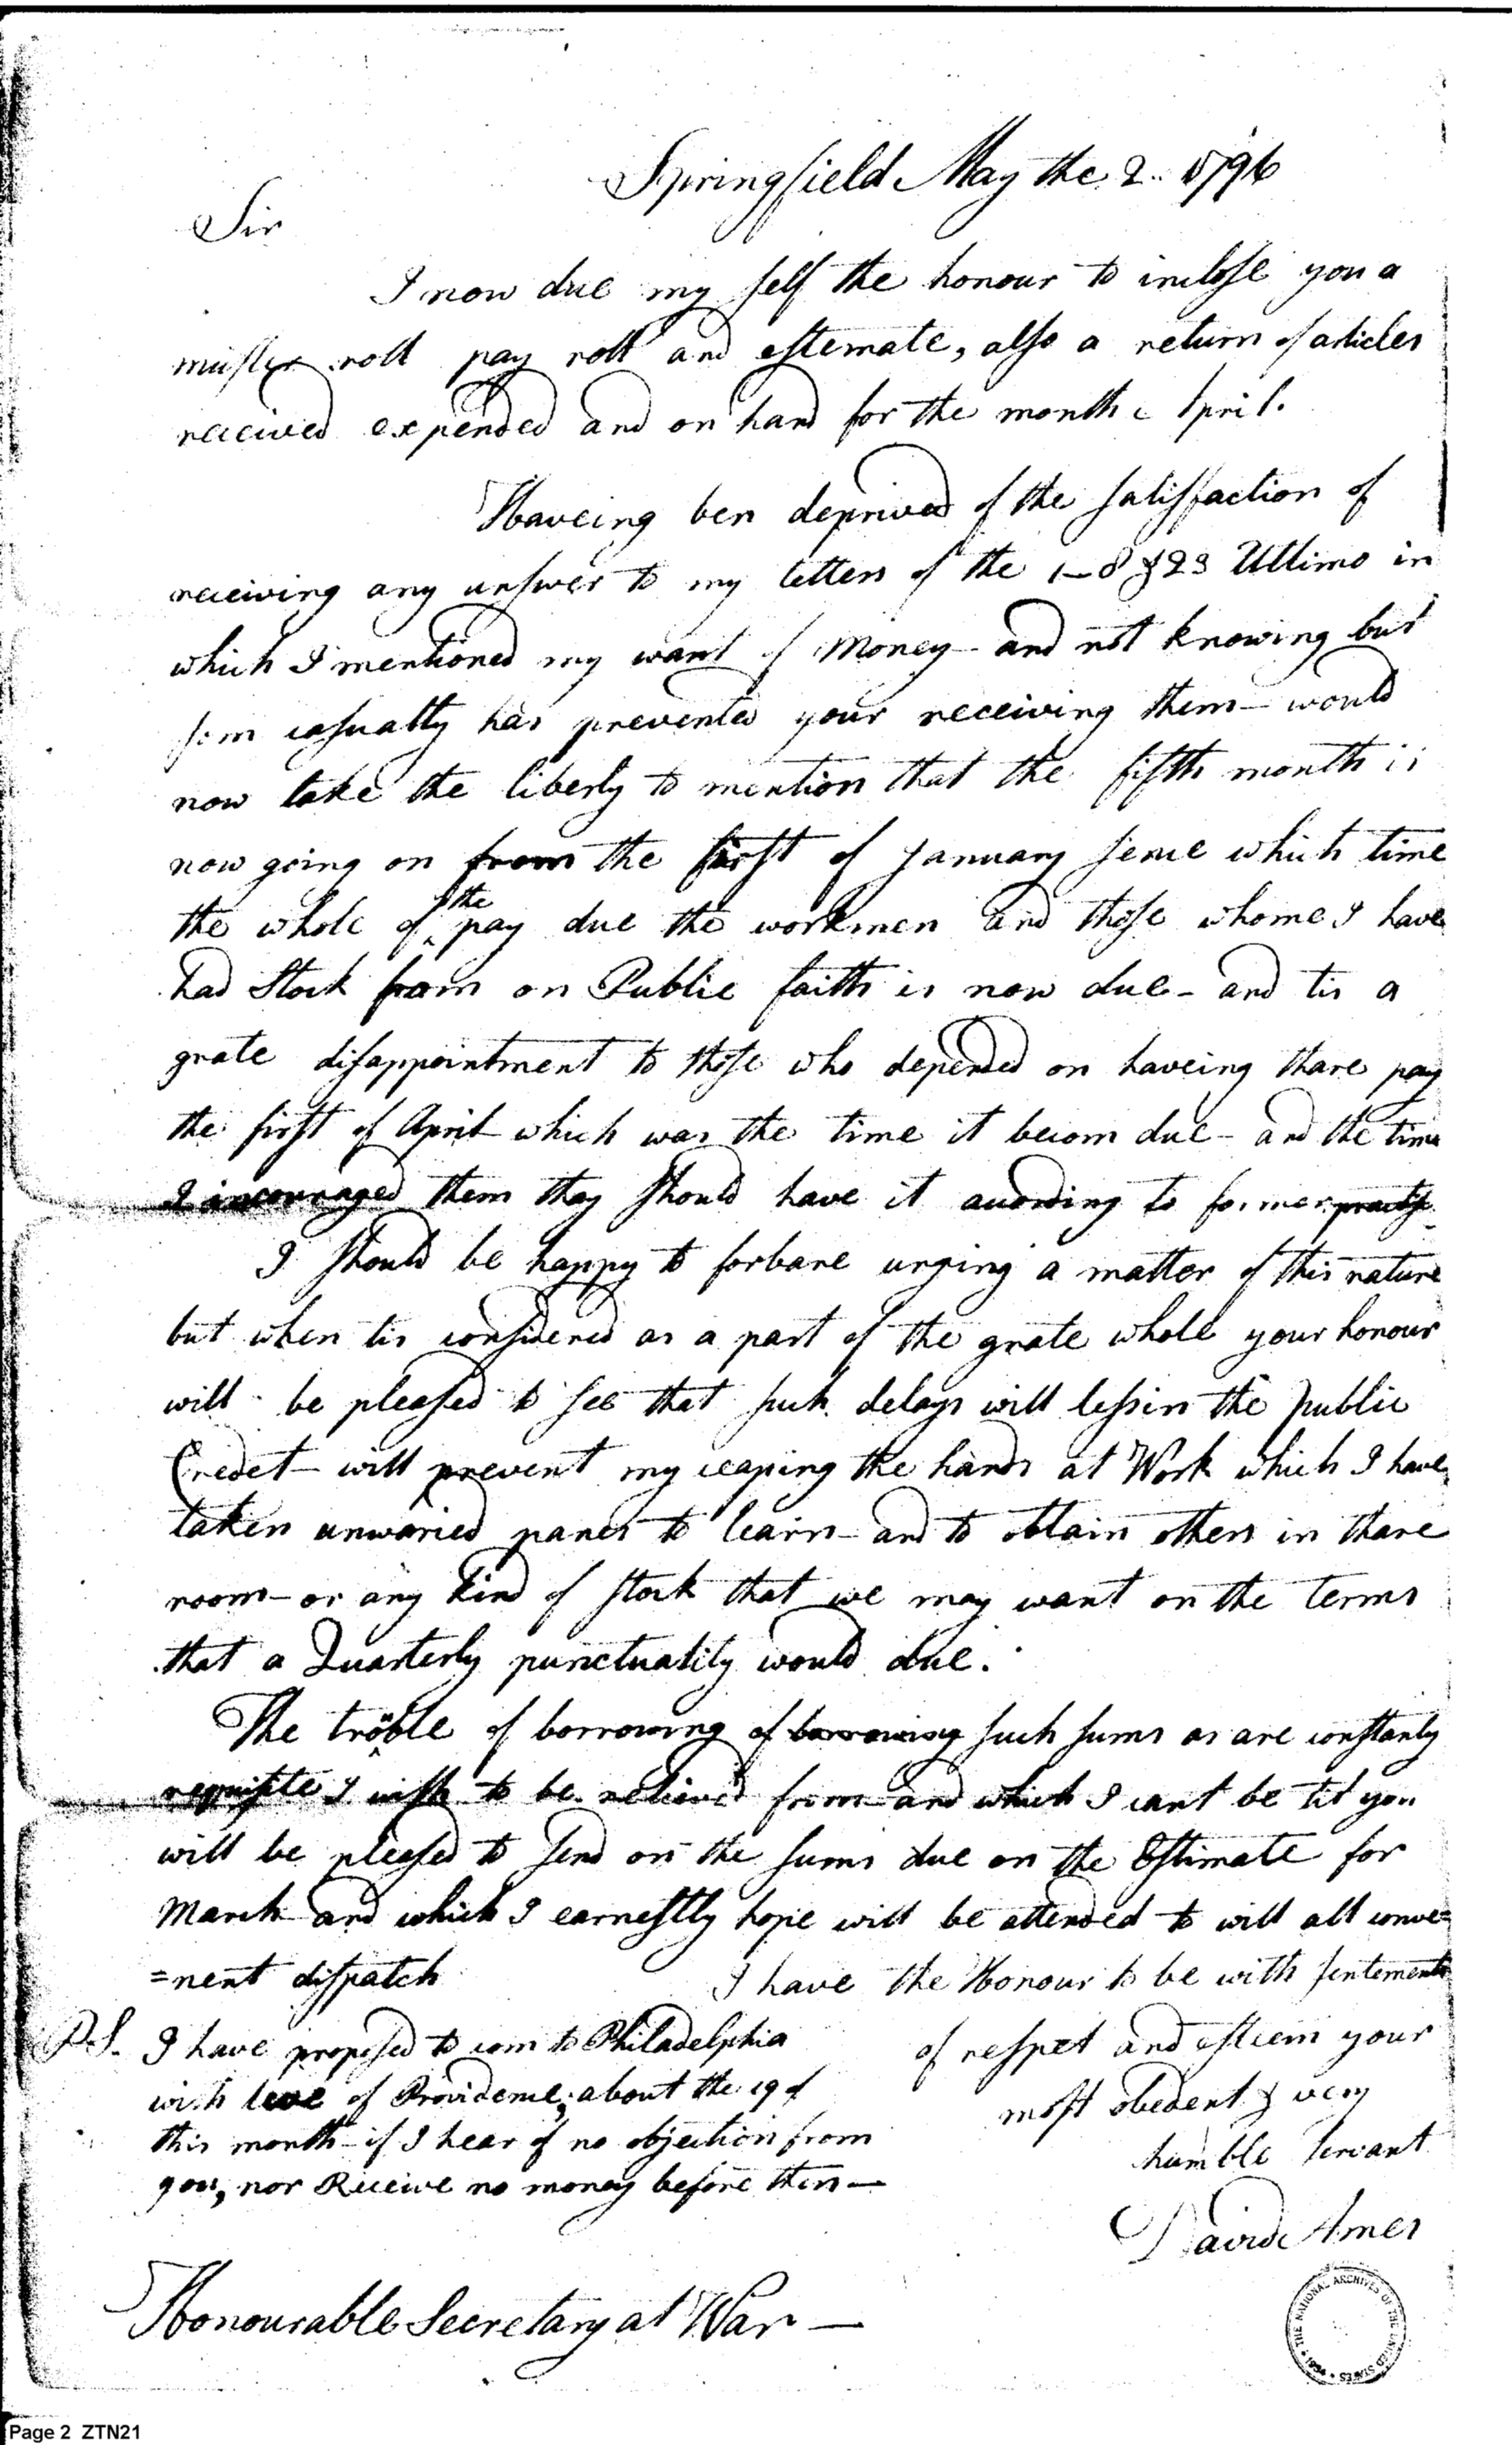 Springfield May the 2.. 1796
Sir
I now due my self the honour to inclose you a
muster roll pay roll and estemate, also a return of articles
received expended and on hand for the month April.
Haveing ben deprived of the satisfaction of
receiving any answer to my letters of the 1-8 & 23 Ultimo in
which I mentioned my want of Money - and not knowing but
som casualty has prevented your receiving them - would
now take the liberty to mention that the fifth month is
now going on from the first of January sence which time
the whole of the pay due the workmen and those whome I have
had Stock from on Public faith is now due - and tis a
grate disappointment to those who depended on haveing thare pay
the first of April which was the time it becom due - and the time
I incouraged them thay should have it acording to former practise
I should be happy to forbare urging a matter of this nature
but when tis considered as a part of the grate whole your honour
will be pleased to see that such delays will lessin the public
Credet - will prevent my ceaping the hands at Work which I have
taken unwaried panes to learn - and to obtain others in thare
room - or any kind of stock that we may want on the terms
that a Quarterly punctuality would due.
The trouble of borrowing of borrowing such sums as are constantly
requisite I wish to be relieved from - and which I cant be til you
will be pleased to send on the sums due on the Estimate for
March and which I earnestly hope will be attended to will all conve=
=nent dispatch
I have the Honour to be with sentements
of respect and esteem your
most obedent & very
humble servant
David Ames
P.S. I have proposed to com to Philadelphia
with leve of Providence, about the 19 of
this month - if I hear of no objection from
you, nor Receive no money before then -
Honourable Secretary at War -
THE NATIONAL ARCHIVES OF THE UNITED STATES • 1934 •
Page 2 ZTN21